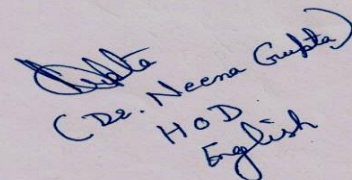 Gupta
(Dr. Neena Gupta)
HOD
English